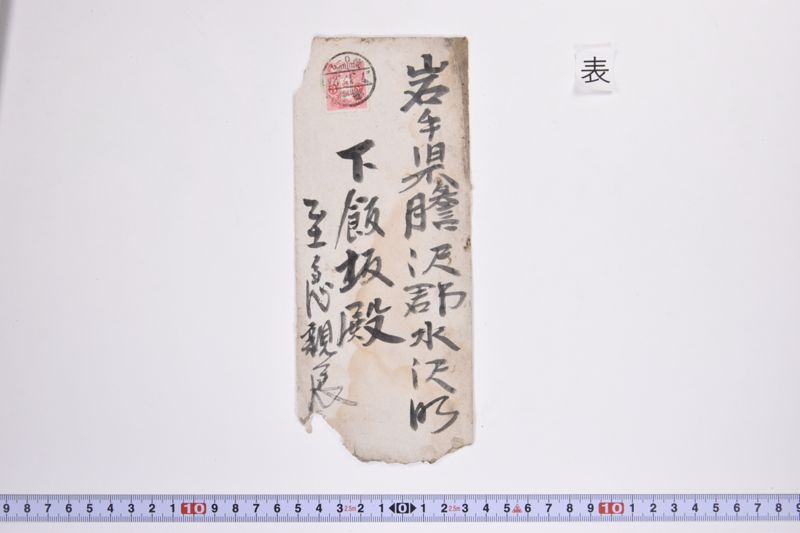 岩手県膽沢郡水沢町
下飯坂殿
至急親展
表
9 8 7 6 5 4 3 2 1 10 9 8 7 6 5 4 3 2.5m 2 1 0 1 2 2.5m 3 4 5 6 7 8 9 10 1 2 3 4 5 6 7 8 9